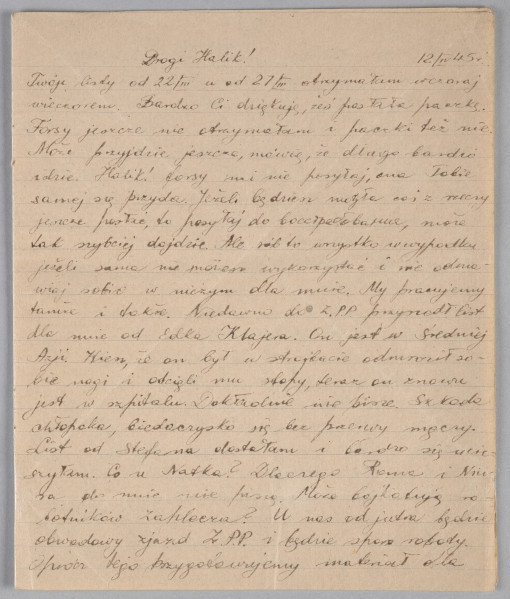 Drogi Halik! 12/IV 45 r.
Twoje listy od 22/III i od 27/III otrzymałam wczoraj
wieczorem. Bardzo Ci dziękuję, żeś posłała paczkę.
Forsy jeszcze nie otrzymałam i paczki też nie.
Może przyjdzie jeszcze, mówią, że długo bardzo
idzie. Halik! Forsy mi nie posyłaj, ona Tobie
samej się przyda. Jeżeli będziesz mogła coś z rzeczy
jeszcze posłać, to posyłaj do może
tak szybciej dojdzie. Ale rób to wszystko w wypadku
jeżeli sama nie możesz wykorzystać i nie odma-
wiaj sobie w niczym dla mnie. My pracujemy
tutaj i dobrze. Niedawno do Z.P.P. przyszedł list
dla mnie od Edka Klajera. On jest w Średniej
Azji. Wiesz, że on był w odmroził so-
bie nogi i odcięli mu stopy, teraz on znowu
jest w szpitalu. Dokładnie nie pisze. Szkoda
chłopaka, biedaczysko się bez przerwy męczy.
List od Stefana dostałam i bardzo się ucie-
szyłam. Co u Natka? Dlaczego Roma i Niu-
sia do mnie nie piszą. Może ro-
botników zapłacza? U nas od jutra będzie
obwodowy zjazd Z.P.P. i będzie sporo roboty.
Oprócz tego przygotowujemy materiał dla